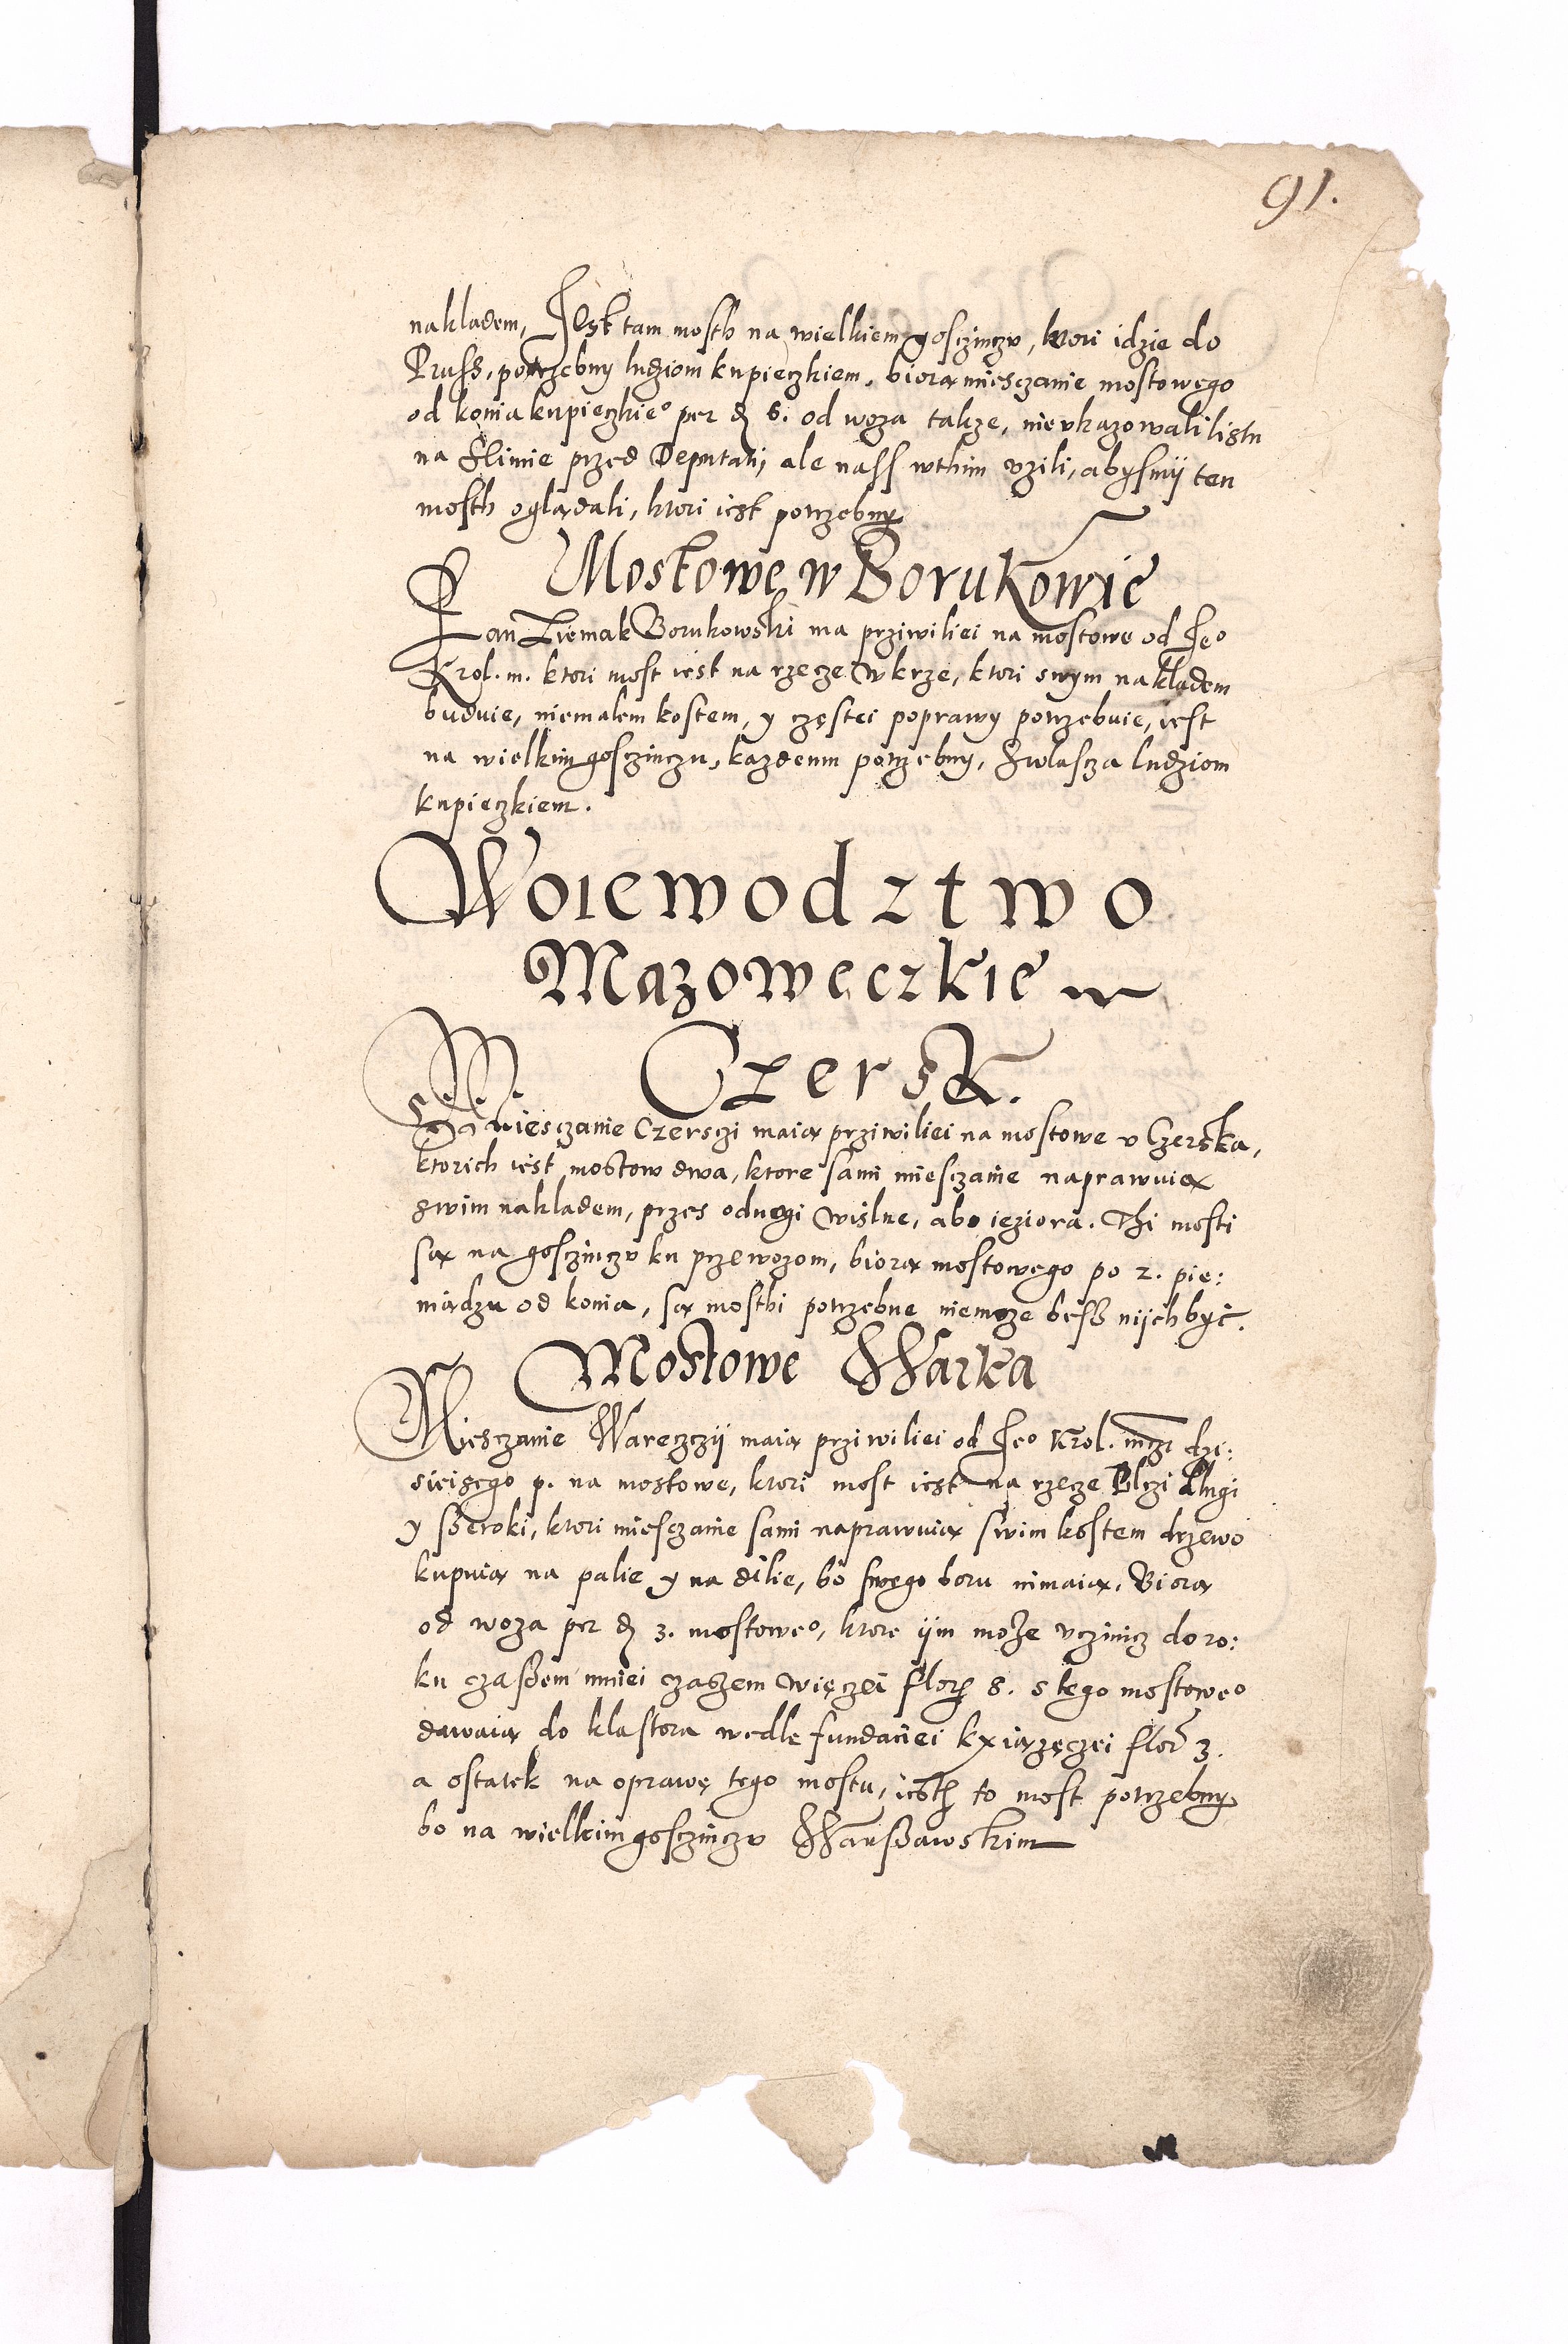 91.
nakladem, Jest tam mosth na wielkiem gosczinczv, ktori idzie do
Pruss, potrzebny ludziom kupieczkiem, biorą miesczanie mostowego
od konia kupieczkieo per đ 6. od woza takze, nie vkazowali listu
na Slimie przed Deputati, ale nass wthim vzili, abysmÿ ten
mosth oglądali, ktori iest potrzebny
Mostowe w Borukowie
Jan Ziemak Borukowski ma prziwiliei na mostowe od Jeo
Krol. m. ktori most iest na rzecze Wkrze, ktori swym nakladem
buduie, niemalem kostem, y częstei poprawy potrzebuie, iest
na wielkim gosczinczu, kazdemu potrzebny, Zwlascza ludziom
kupieczkiem.
Woiewodztwo
Mazoweczkie
Czersk.
Miesczanie Czersczi maią prziwiliei na mostowe v Czerska,
ktorich iest mostow dwa, ktore sami miesczanie naprawuią
swim nakladem, przes odnogi wislne, abo ieziora. Thi mosti
są na gosczinczv ku przewozom, biorą mostowego po 2. pie:
niądzu od konia, są mosthi potrzebne niemoze bess nÿch być.
Mostowe Warka
Miesczanie Wareczczÿ maią prziwiliei od Jeo Krol. mczi dzi:
sieiszego p. na mostowe, ktori most iest na rzecze Pilczi dlugi
y szeroki, ktori miesczanie sami naprawuią swim kostem drzewo
kupuią na palie y na dilie, bo swego boru nimaią, Biorą
od woza per đ 3. mostoweo, ktore ÿm może vczinicz do ro:
ku czassem mniei czaszem więczei flor 8. s tego mostoweo
dawaią do klastora wedle fundaciei kxiążęczei flor 3.
a ostatek na oprawę tego mostu, iesth to most potrzebny
bo na wielkim gosczinczv Warszawskim